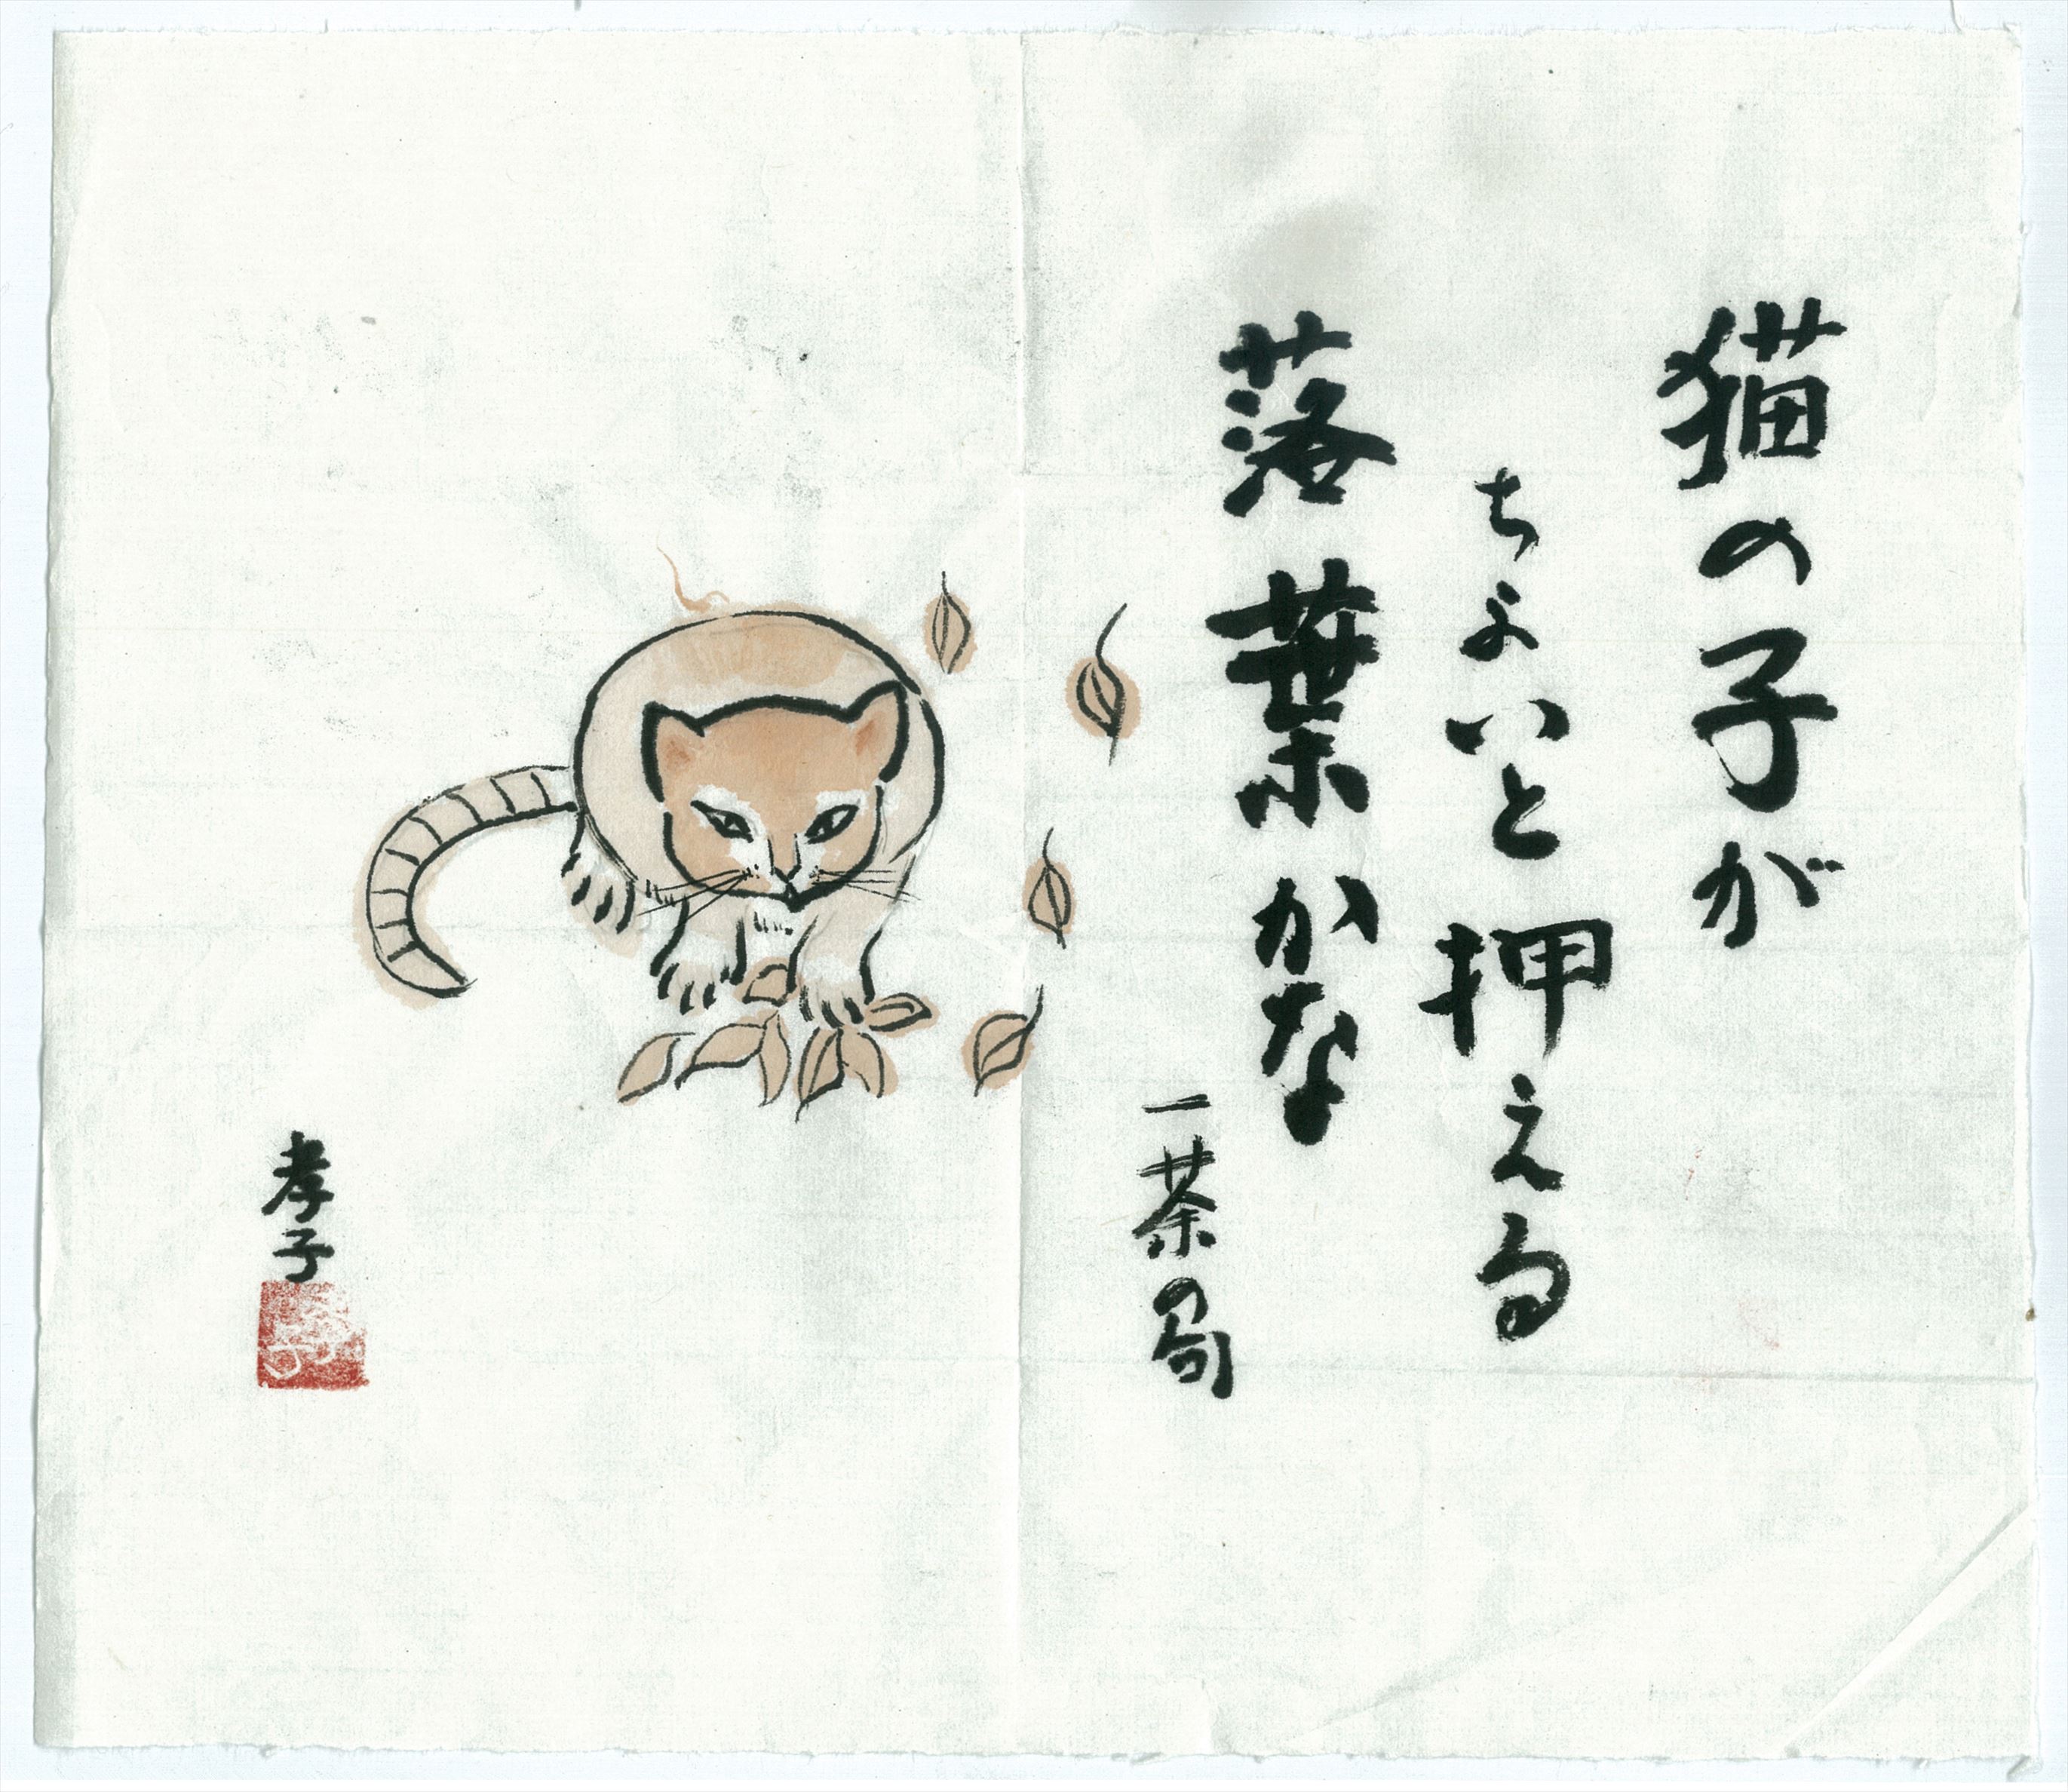 猫の子が
ちよいと押える
落葉かな
一茶の句
孝子